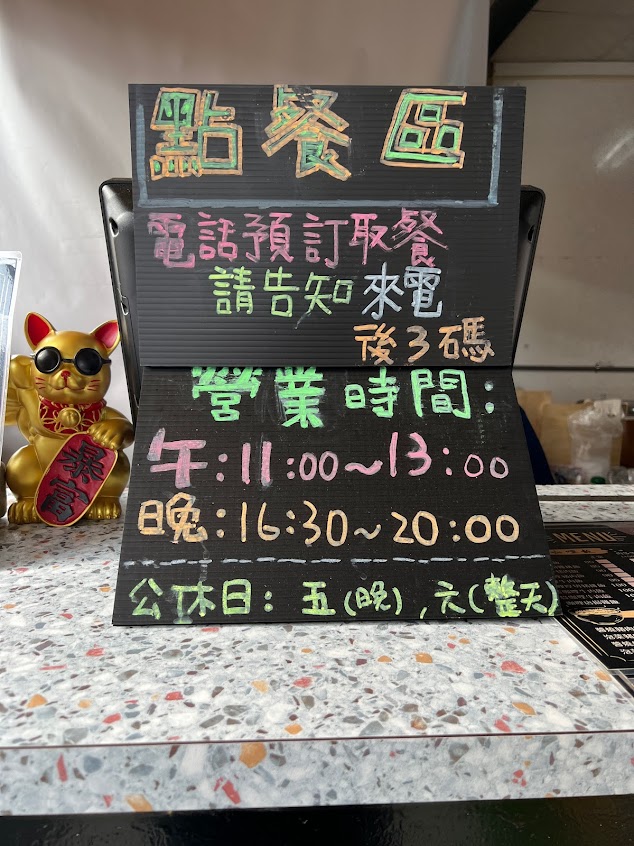 點餐區
電話預訂取餐
請告知來電
後3碼
營業時間:
午:11:00~13:00
晚:16:30~20:00
公休日:五(晚),六(整天)
暴富
MENU